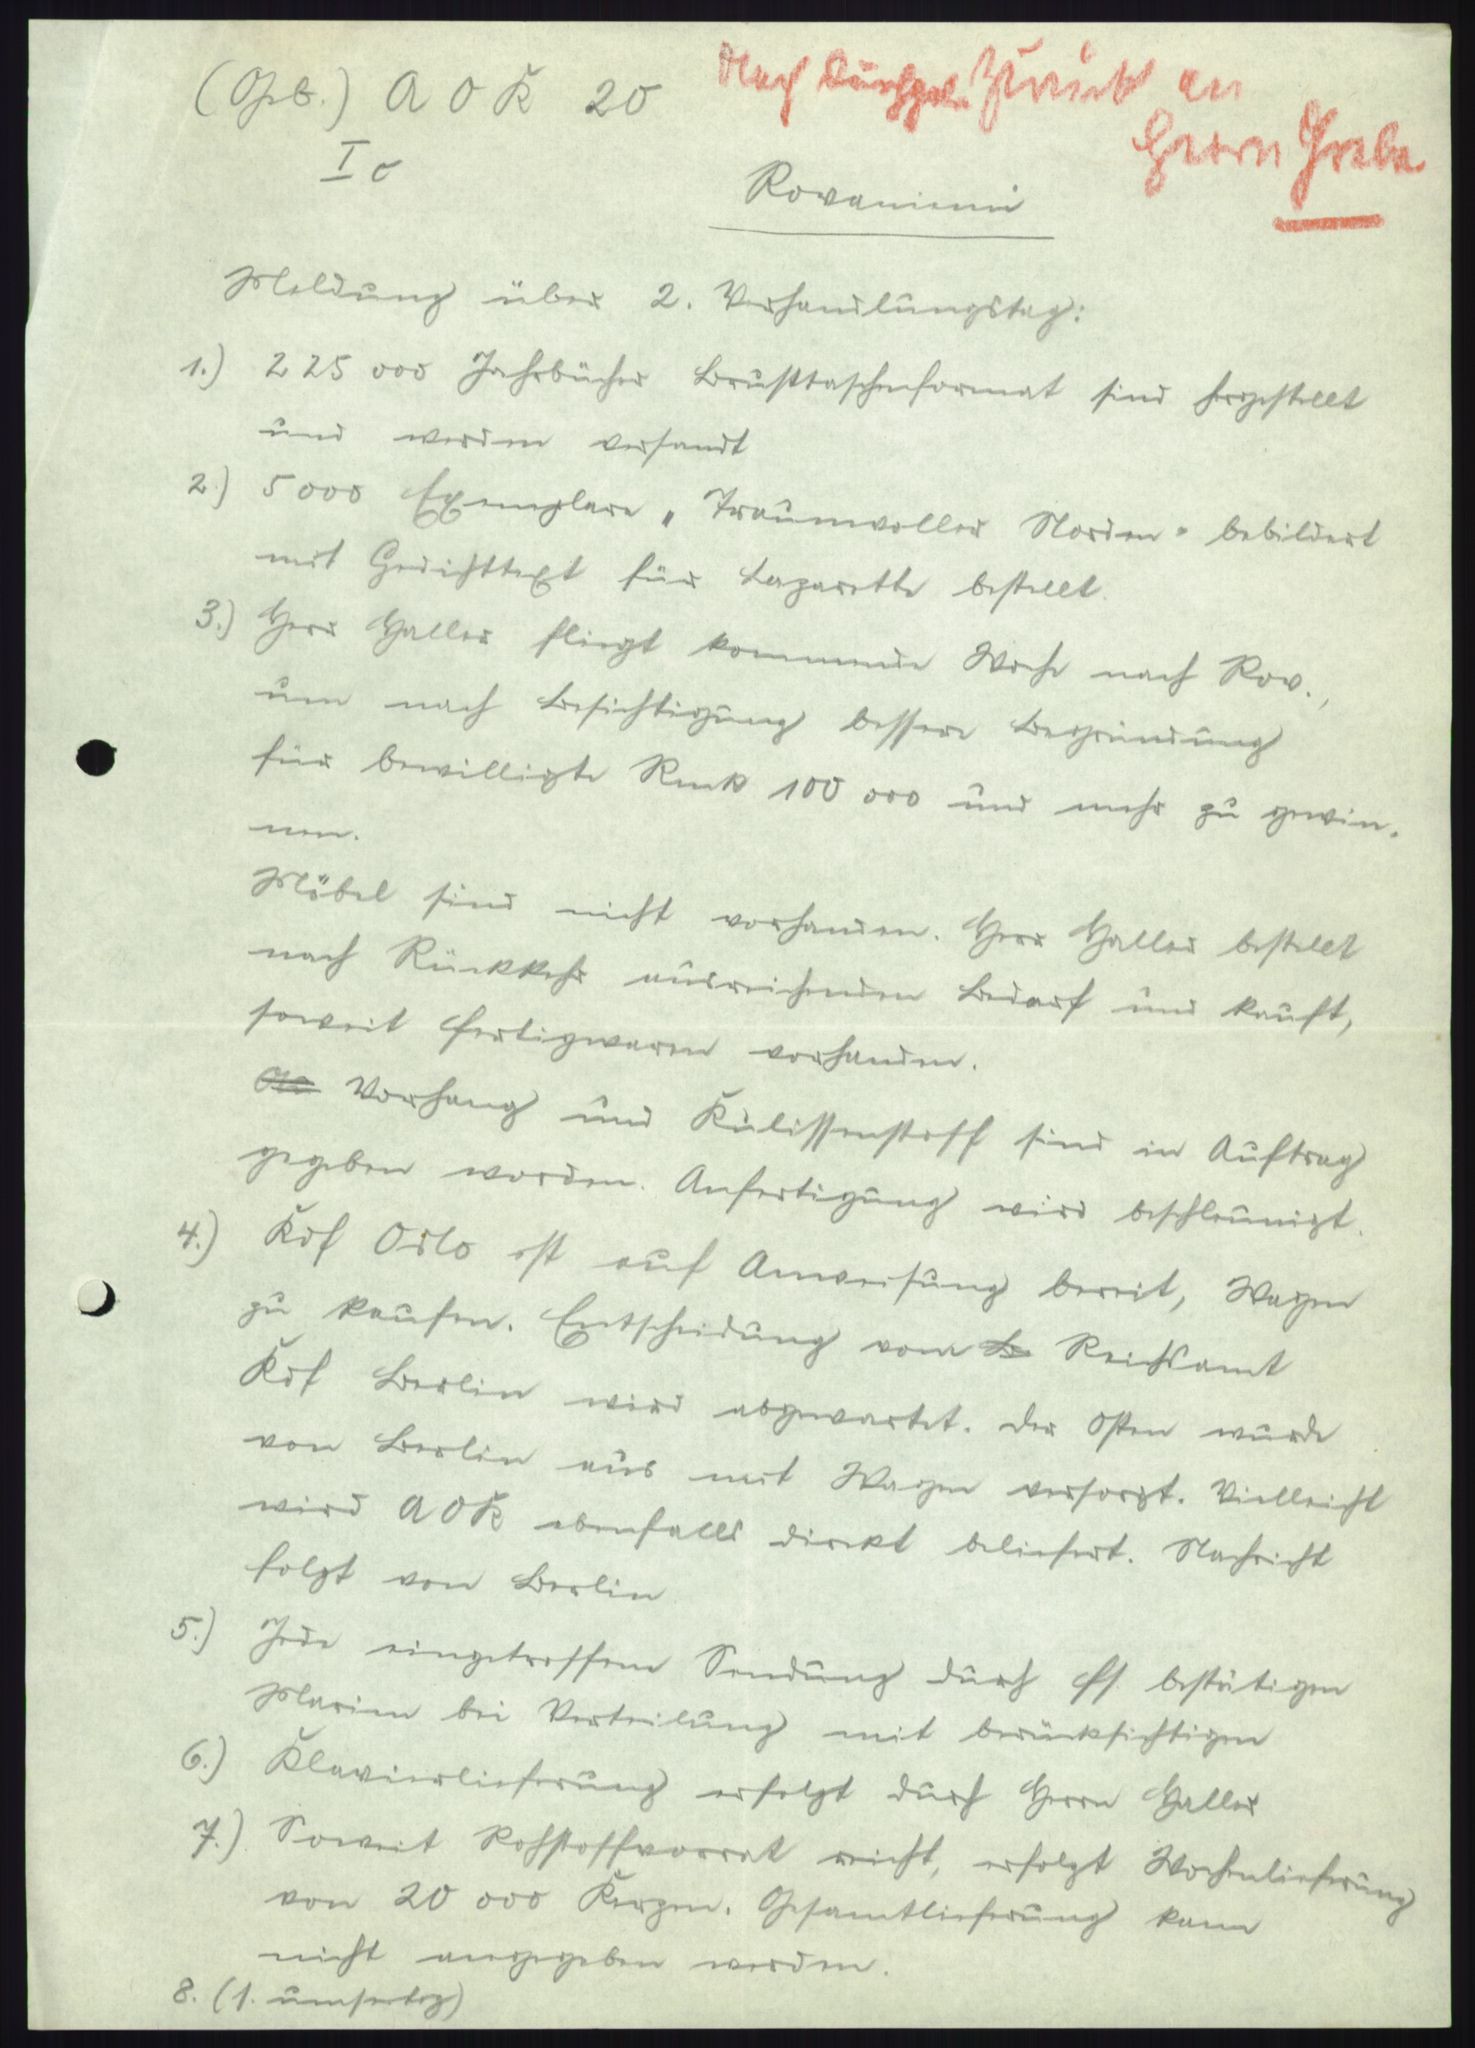 (Geb.) A O K 20
Nach Durchgabe zurück an
Herrn Grabe
I c
Rovaniemi
Meldung über 2. Verhandlungstag:
1.) 225 000 Jahrbücher Brusttaschenformat sind hergestellt
und werden versandt
2.) 5000 Exemplare „Traumvoller Norden" bebildert
mit Gedichttext für Lazarette bestellt.
3.) Herr Haller fliegt kommende Woche nach Rov.,
um nach Besichtigung bessere Begründung
für bewilligte Rmk 100 000 und mehr zu gewin-
nen.
Möbel sind nicht vorhanden. Herr Haller bestellt
nach Rückkehr ausreichenden Bedarf und kauft,
soweit Fertigwaren vorhanden.
Vorhang und Kulissenstoff sind in Auftrag
gegeben worden. Anfertigung wird beschleunigt.
4.) Kdf Oslo ist auf Anweisung bereit, Wagen
zu kaufen. Entscheidung vom Reichsamt
Kdf Berlin wird abgewartet. Der Osten wurde
von Berlin aus mit Wagen versorgt. Vielleicht
wird A O K ebenfalls direkt beliefert. Nachricht
folgt von Berlin
5.) Jede eingetroffene Sendung durch FS. bestätigen
Marine bei Verteilung mit berücksichtigen
6.) Klavierlieferung erfolgt durch Herrn Haller
7.) Soweit Rohstoffvorrat reicht, erfolgt Wochenlieferung
von 20 000 Kerzen. Gesamtlieferung kann
nicht angegeben werden.
8. (1.